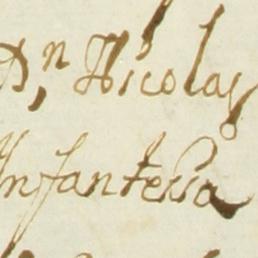 D,ⁿ Nicolas
Infantessa